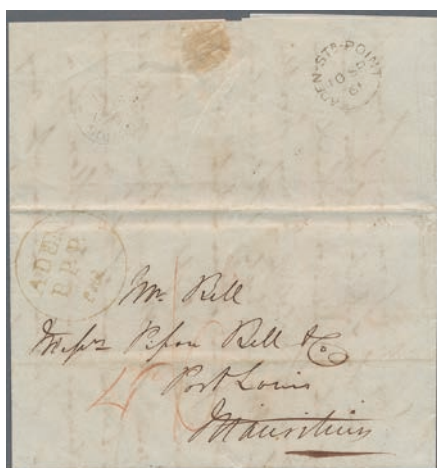 ADEN-STR-POINT
10 SP
61
ADEN
P.P.P.
Mr. Bell
Messrs Pipon Bell & Co
Port Louis
Mauritius